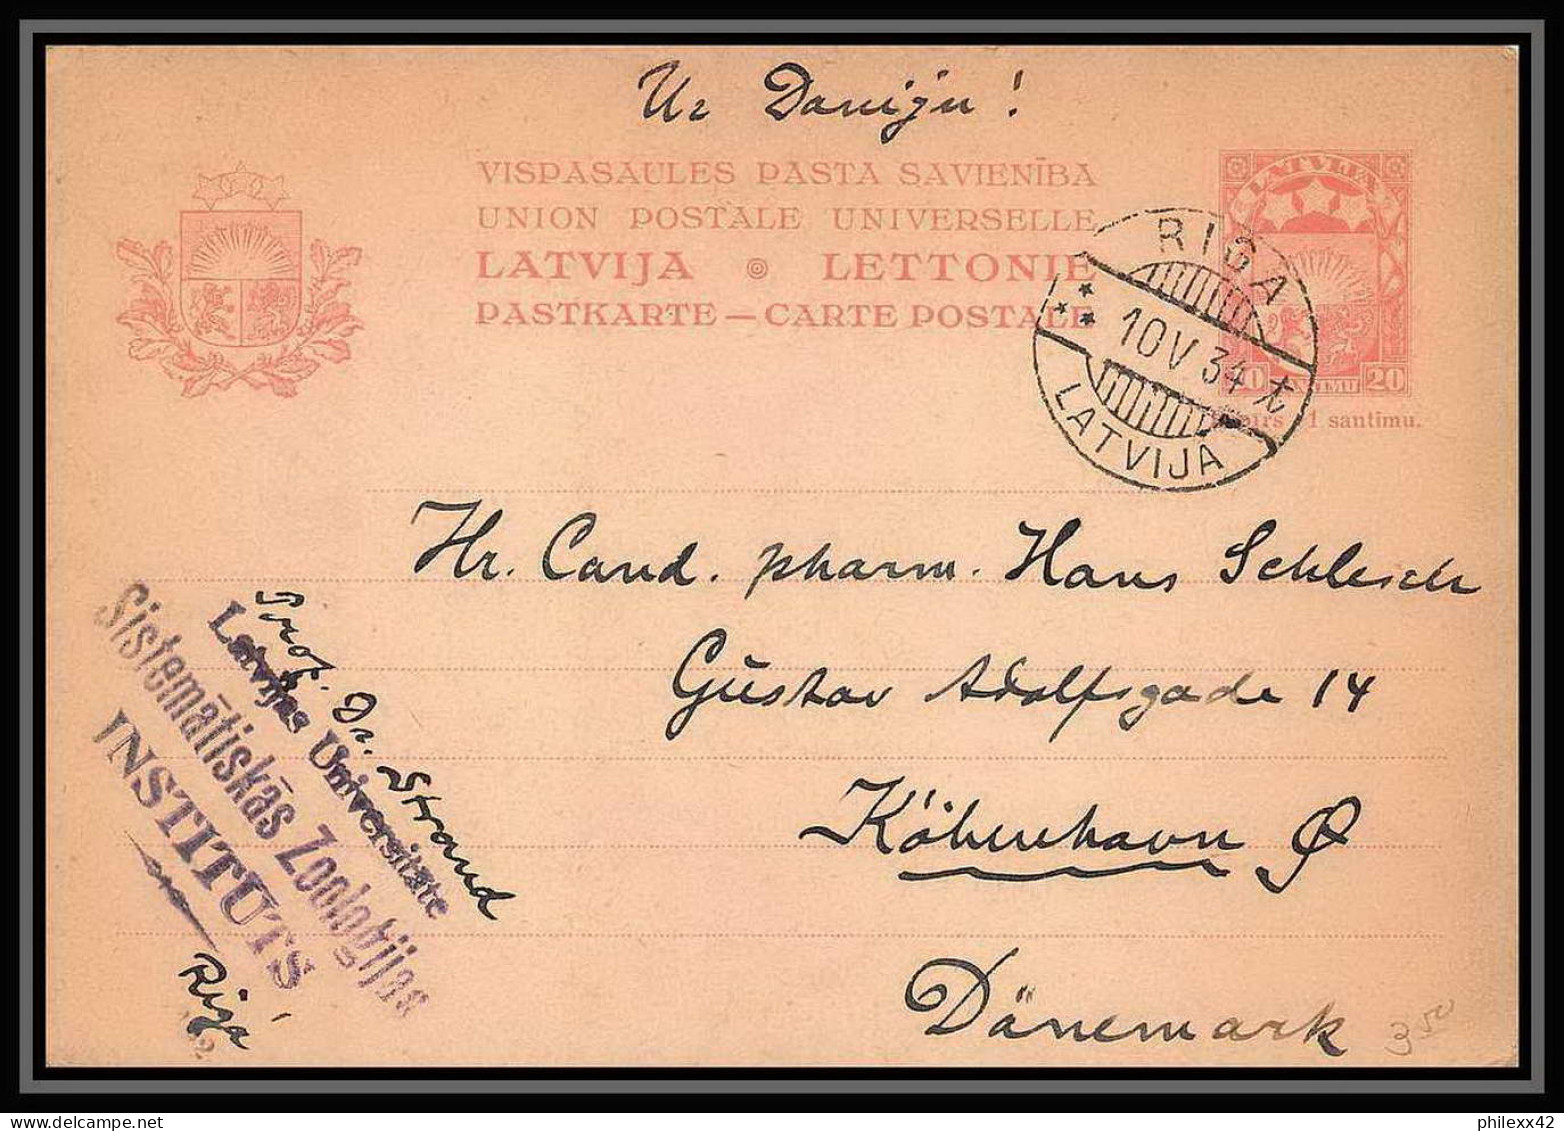 Uz Daniju!
VISPASAULES PASTA SAVIENĪBA
UNION POSTALE UNIVERSELLE
LATVIJA ◎ LETTONIE
PASTKARTE — CARTE POSTALE
LATVIJA
20 SANTIMU 20
RIGA
10 V 34 t
LATVIJA
1 santimu.
Hr. Cand. pharm. Hans Schlesch
Gustav Adolfsgade 14
Köbenhavn Ø
Dänemark
Prof. Dr. Strand
Latvijas Universitāte
Sistemātiskās Zooloģijas
INSTITUTS
Rigā
3 50
philexx42